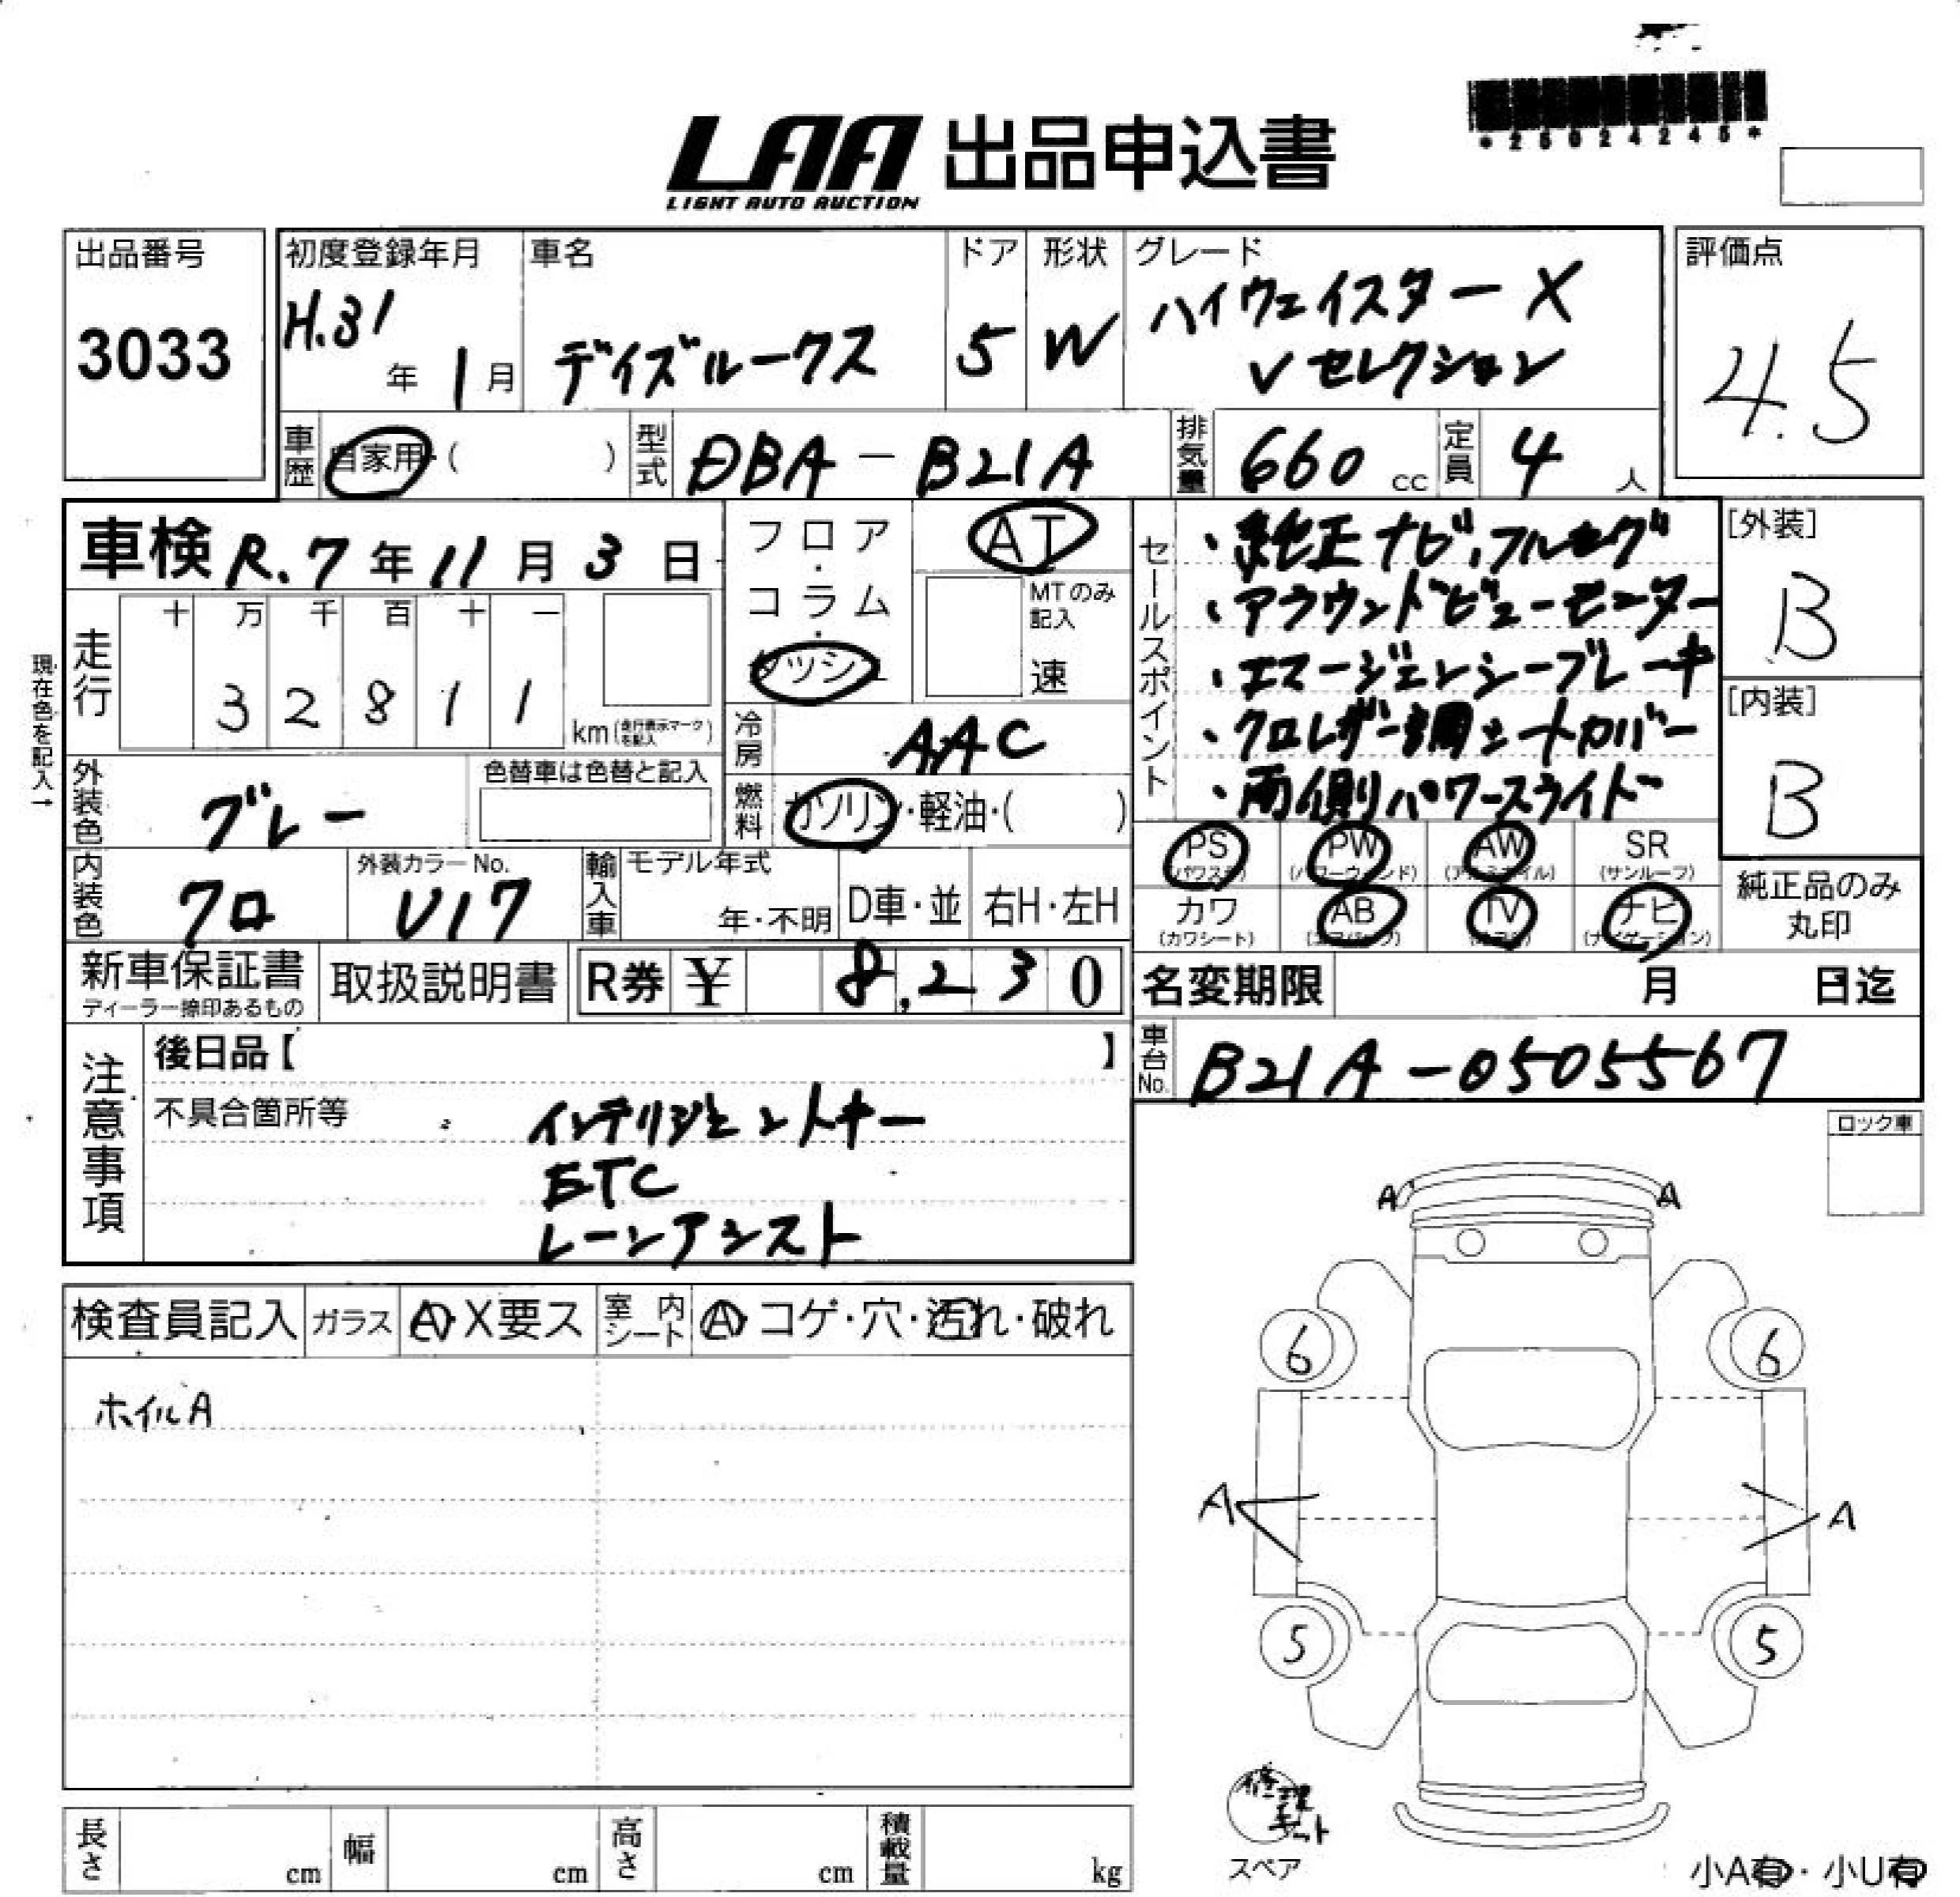 *25024245*
LAA 出品申込書
LIGHT AUTO AUCTION
出品番号
3033
初度登録年月
H.31年 1月
車名
デイズルークス
ドア
5
形状
W
グレード
ハイウェイスター X
Vセレクション
評価点
4.5
車歴 自家用・( )
型式 DBA-B21A
排気量 660 cc
定員 4 人
車検 R.7年 11月 3日
フロア・コラム・ダッシュ
AT
MTのみ記入
速
走行
十 万 千 百 十 一
3 2 8 1 1
km(走行表示マークを記入)
現在色を記入→
冷房 AAC
外装色 グレー
色替車は色替と記入
燃料 ガソリン・軽油・( )
内装色 クロ
外装カラーNo.
U17
輸入車 モデル年式
年・不明
D車・並
右H・左H
セールスポイント
・純正ナビ,フルセグ
・アラウンドビューモニター
・エマージェンシーブレーキ
・クロレザー調シートカバー
・両側パワースライド
[外装]
B
[内装]
B
PS (パワステ)
PW (パワーウィンド)
AW (アルミホイル)
SR (サンルーフ)
カワ (カワシート)
AB (エアバッグ)
TV
ナビ (ナビゲーション)
純正品のみ丸印
新車保証書
ディーラー捺印あるもの
取扱説明書
R券 ¥ 8,230
名変期限 月 日迄
車台No. B21A-0505567
注意事項
後日品【 】
不具合箇所等
インテリジェントキー
ETC
レーンアシスト
ロック車
検査員記入
ガラス A・X要ス
室内シート A・コゲ・穴・汚れ・破れ
ホイルA
A A
6 6
A A
5 5
修理キット
スペア
小A有・小U有
長さ cm
幅 cm
高さ cm
積載量 kg